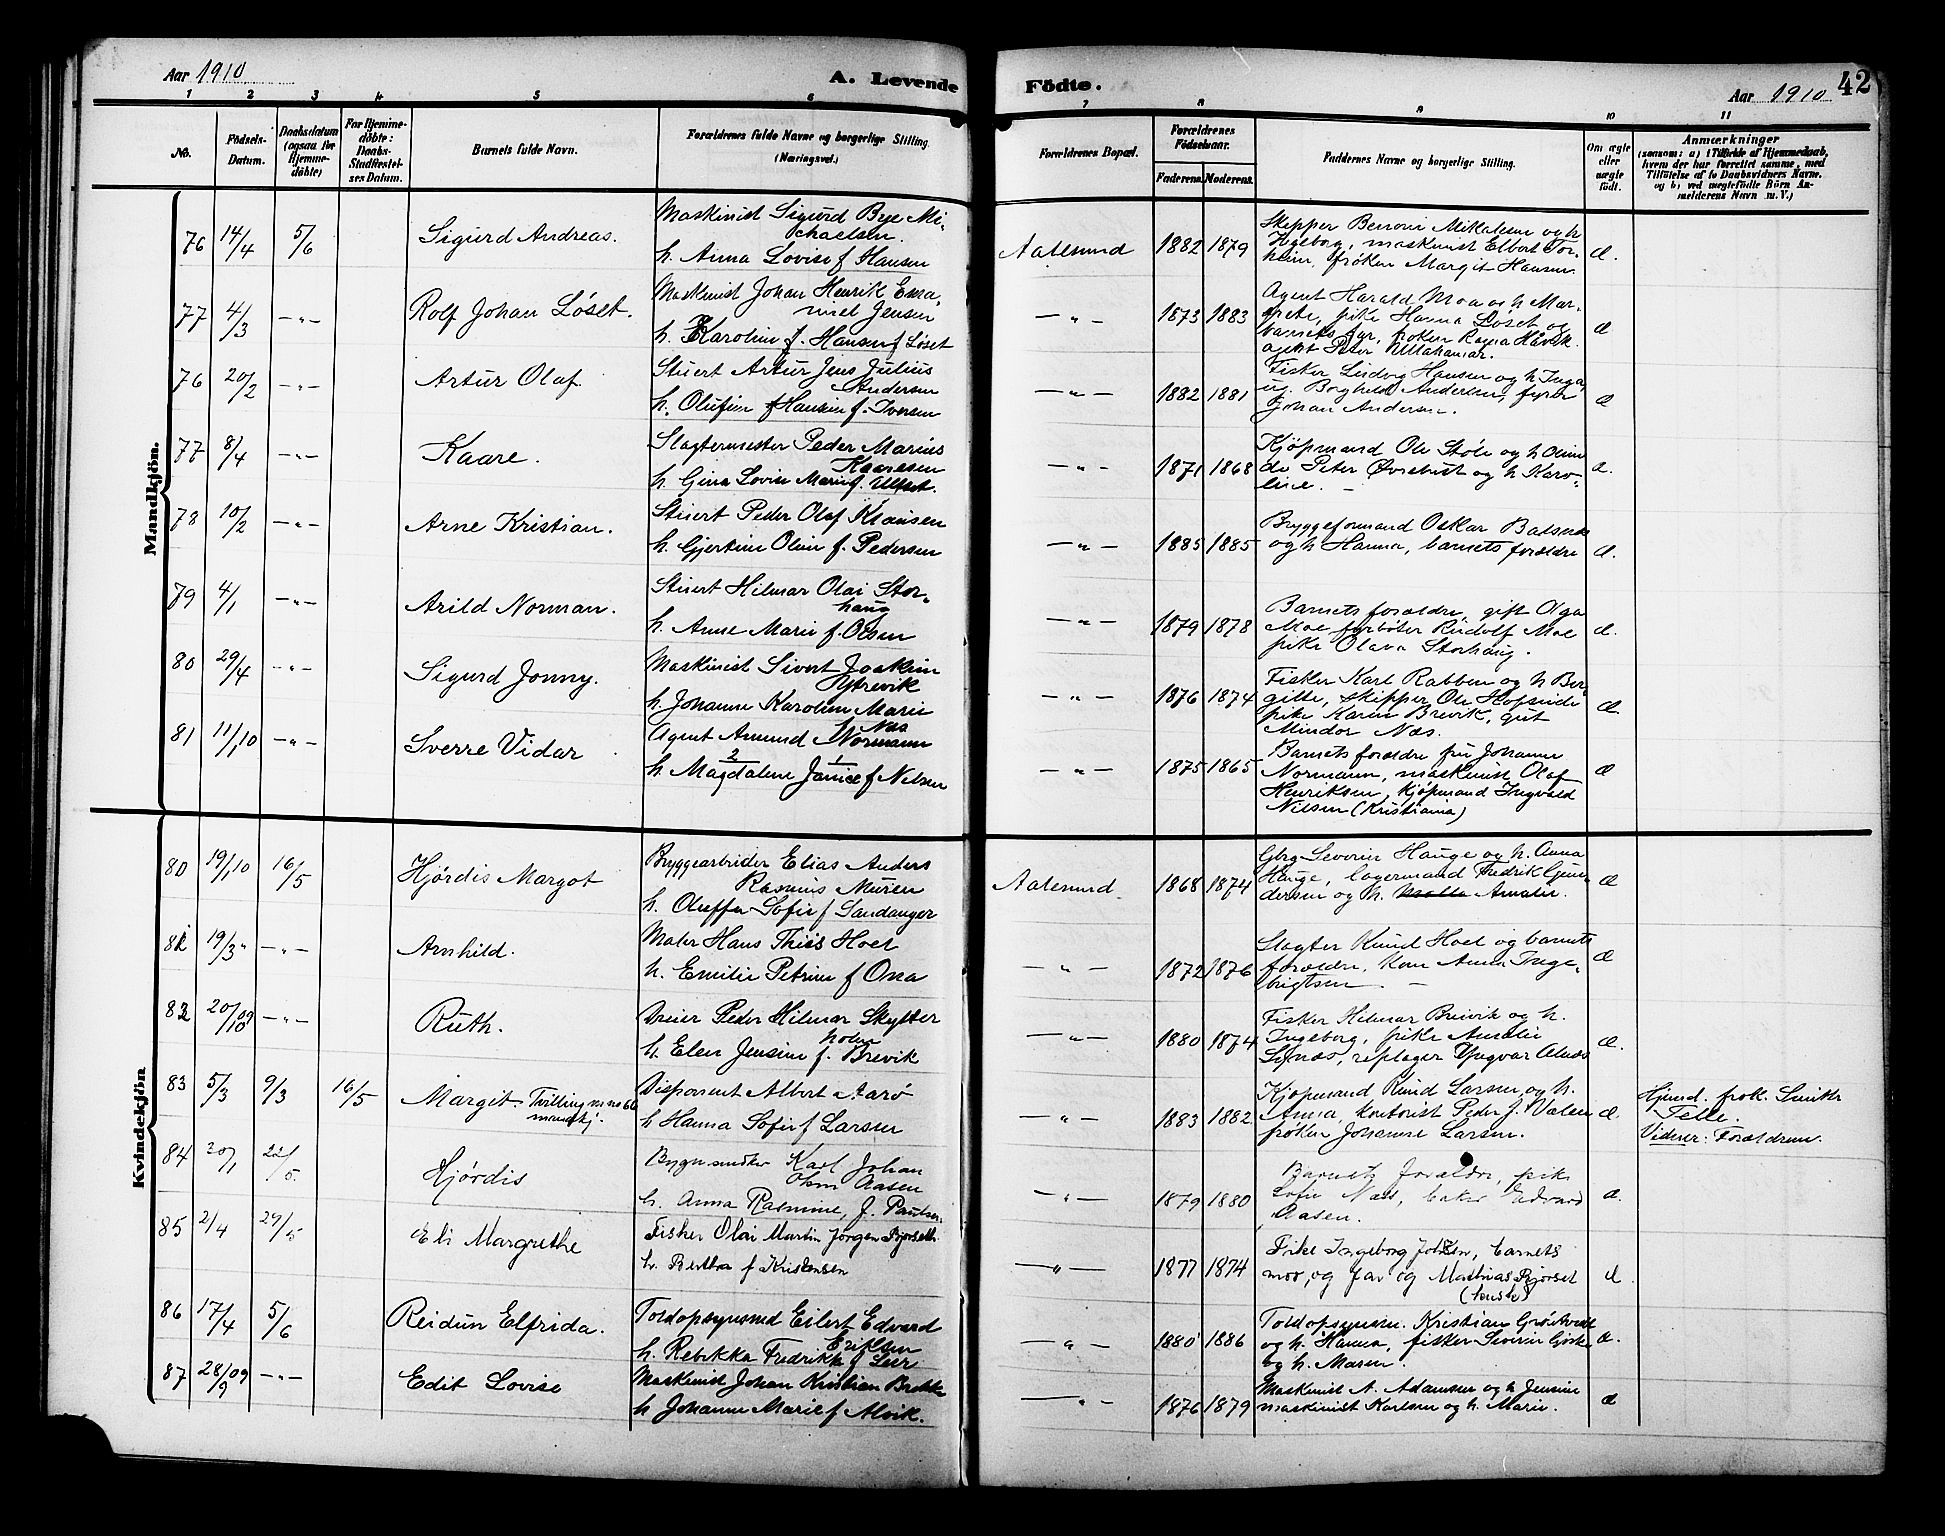 Aar 1910
A. Levende Födte.
Aar 1910
42
1 2 3 4 5 6 7 8 9 10 11
No.
Födsels-Datum.
Daabsdatum (ogsaa for Hjemme-döbte)
For Hjemme-döbte: Daabs-Stadfæstel-ses Datum.
Barnets fulde Navn.
Forældrenes fulde Navne og borgerlige Stilling. (Næringsvei.)
Forældrenes Bopæl.
Forældrenes Födselsaar.
Faderens. Moderens.
Faddernes Navne og borgerlige Stilling.
Om ægte eller uægte födt.
Anmærkninger
(saasom: a) i Tilfælde af Hjemmedaab,
hvem der har forrettet samme, med
Tilföielse af to Daabsvidners Navne.
og b) ved uægtefödte Börn An-
melderens Navn m. V.)
Mandkjön.
76 14/4 5/6 Sigurd Andreas.
Maskinist Sigurd Bye Mi-
chaelsen.
h. Anna Lovise f Hansen
Aalesund 1882 1879
Skipper Mikalsen og h
Ingeborg, maskinist Elbert Tor-
heim, frøken Margit Hansen. æ.
77 4/3 —"— Rolf Johan Løset.
Maskinist Johan Henrik Ema-
nuel Jensen
h. Karoline f. Hansen f Løset
—"— 1873 1883
Agent Harald Moa og h Mar-
grete, pike Hanna Løset og
barnets far, frøken Ragna
agent Peter æ
76 20/2 —"— Artur Olaf.
Stuert Artur Jens Julius
Andersen
h. Olufine f Hansen f. Iversen
—"— 1882 1881
Fisker Ludvig Hansen og h Inga,
Borghild Andersen, fyrb
Johan Andersen. æ
77 8/4 —"— Kaare.
Slagtermester Peder Marius
Kaaresen
h. Gina Lovise Marie f. Ulset.
—"— 1871 1868
Kjöpmand Ole Støle og h Olein
do Peter Øvrebust og h Karo-
line. — æ.
78 10/2 —"— Arne Kristian.
Stuert Peder Olaf Klausen
h. Gjertine Oline f. Pedersen
—"— 1885 1885
Bryggeformand Oskar Balsnes
og h Hanna, barnets forældre æ.
79 4/1 —"— Arild Norman.
Stuert Hilmar Olai Stor-
haug
h. Anne Marie f. Olsen
—"— 1879 1878
Barnets forældre, gift Olga
Moe fyrbøter Rudolf Moe
pike Olava Storhaug. æ.
80 29/4 —"— Sigurd Jonny.
Maskinist Sivert Joakim
Ytrevik
h. Johanne Karoline Marie
Næs
—"— 1876 1874
Fisker Karl Rabben og h Ber-
gitte, skipper Ole
pike Karen Brevik, gut
Mindor Næs. æ.
81 11/1 10 —"— Sverre Vidar
Agent Amund Normann
2 1
h Magdalene Janice f Nilsen
—"— 1875 1865
Barnets forældre fru Johanne
Normann, maskinist Olaf
Henriksen, kjöpmand Ingvald
Nilsen (Kristiania) æ
Kvindekjön
80 19/1 10 16/5 Hjördis Margot
Bryggearbeider Elias Anders
Rasmus Muren
h. Oluffa Sofie f Sandanger
Aalesund 1868 1874
Gbrg Severin Hauge og h. Anna
Hauge, lagermand Fredrik Gun-
dersen og h. Amalie. æ
81 19/3 —"— Arnhild.
Maler Hans Thiis Hoel
h. Emilie Petrine f Ona
—"— 1872 1876
Slagter Knud Hoel og barnets
forældre, kone Anna Inge-
brigtsen — æ
82 20/10 09 —"— Ruth.
Dreier Peder Hilmar Skytter
holm
h. Elen Jensine f. Brevik
—"— 1880 1874
Fisker Hilmar Breivik og h.
Ingeborg, pike Amalie
Synæs, repslager Yngvar Alnæs æ.
83 5/3 9/3 16/5 Margit. Tvilling m no 66
mandkj.
Disponent Albert Aarø
h Hanna Sofie f Larsen
—"— 1883 1882
Kjöpmand Knud Larsen og h.
Anna, kontorist Peder J. Valen
frøken Johanne Larsen. æ.
Hjemd. frøk. Smith
Telle.
Vidner: Forældrene.
84 20/1 22/5. Hjördis
Bygn.snedker Karl Johan
Aasen
h. Anna Rasmine, f. Paulsen.
—"— 1879 1880
Barnets forældre, pike
Sofie Næs, baker Edvard
Aasen. æ.
85 2/4 29/5 Eli Margrethe
Fisker Olai Martin Jørgen Bjørseth.
h. Bertha f Kristensen
—"— 1877 1874
Pike Ingeborg Johsen, barnets
mor, og far og Mathias Bjørset
æ.
86 17/4 5/6 Reidun Elfrida.
Toldopsynsmd Eilert Edvard
Eriksen
h. Rebekka Fredrikke f Seir
—"— 1880 1886
Toldopsynsm. Kristian
og h. Hanna, fisker Severin
og h. Masen. æ.
87 28/9 09 —"— Edit Lovise
Maskinist Johan Kristian Brekke
h Johanne Marie f Alvik.
—"— 1876 1879
Maskinist A. Adamsen og h Jensine
maskinist Karlsen og h. Marie. æ